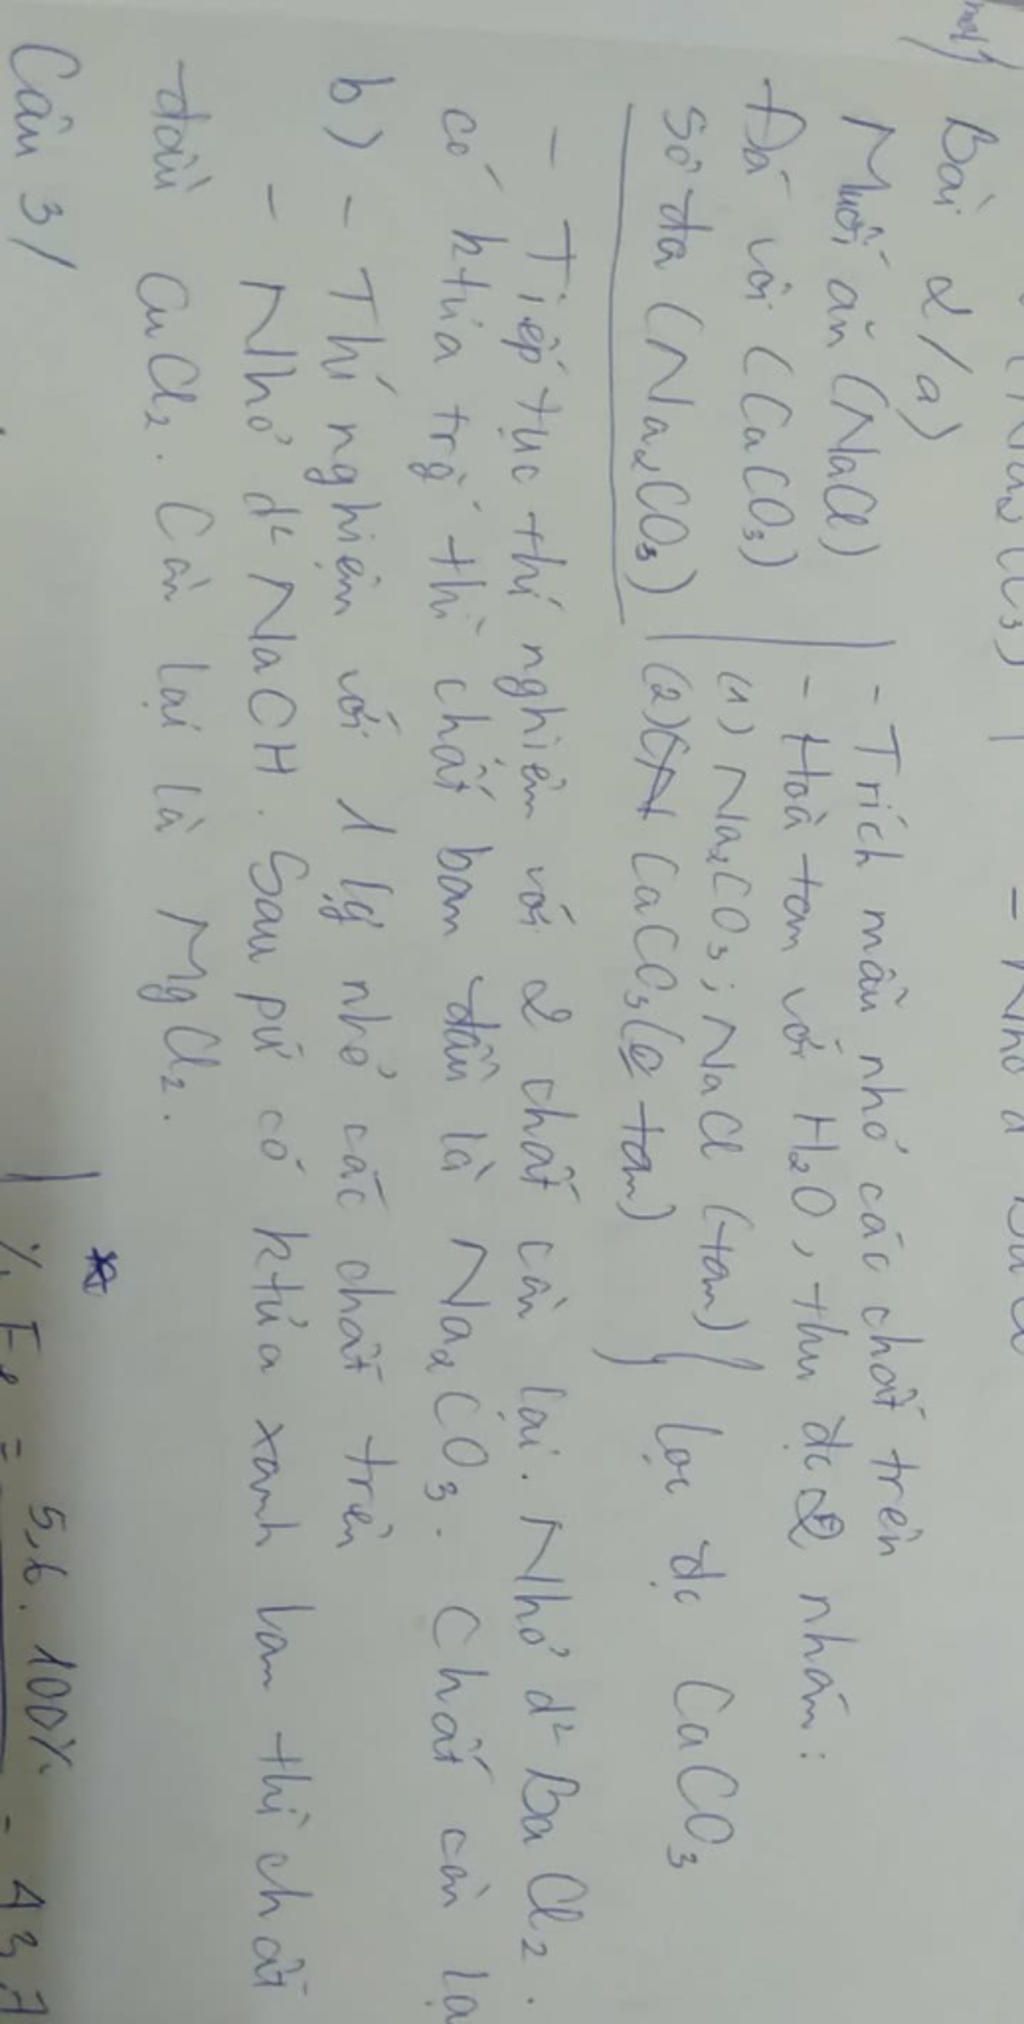 Bài 2/a)
Muối ăn (NaCl) - Trích mẫu nhỏ các chất trên
Đá vôi (CaCO3) - Hoà tan với H2O, thu đc 2 nhóm:
Sô đa (Na2CO3) (1) Na2CO3; NaCl (tan)
(2) CaCO3 (tan) lọc đc CaCO3
- Tiếp tục thí nghiệm với 2 chất còn lại. Nhỏ d² BaCl2.
có ktủa trg thì chất ban đầu là Na2CO3. Chất còn lạ
b) - Thí nghiệm với 1 lg nhỏ các chất trên
- Nhỏ d² NaOH. Sau pứ có ktủa xanh lam thì chất
đầu CuCl2. Còn lại là MgCl2.
Câu 3/
% Fe = 5,6.100%